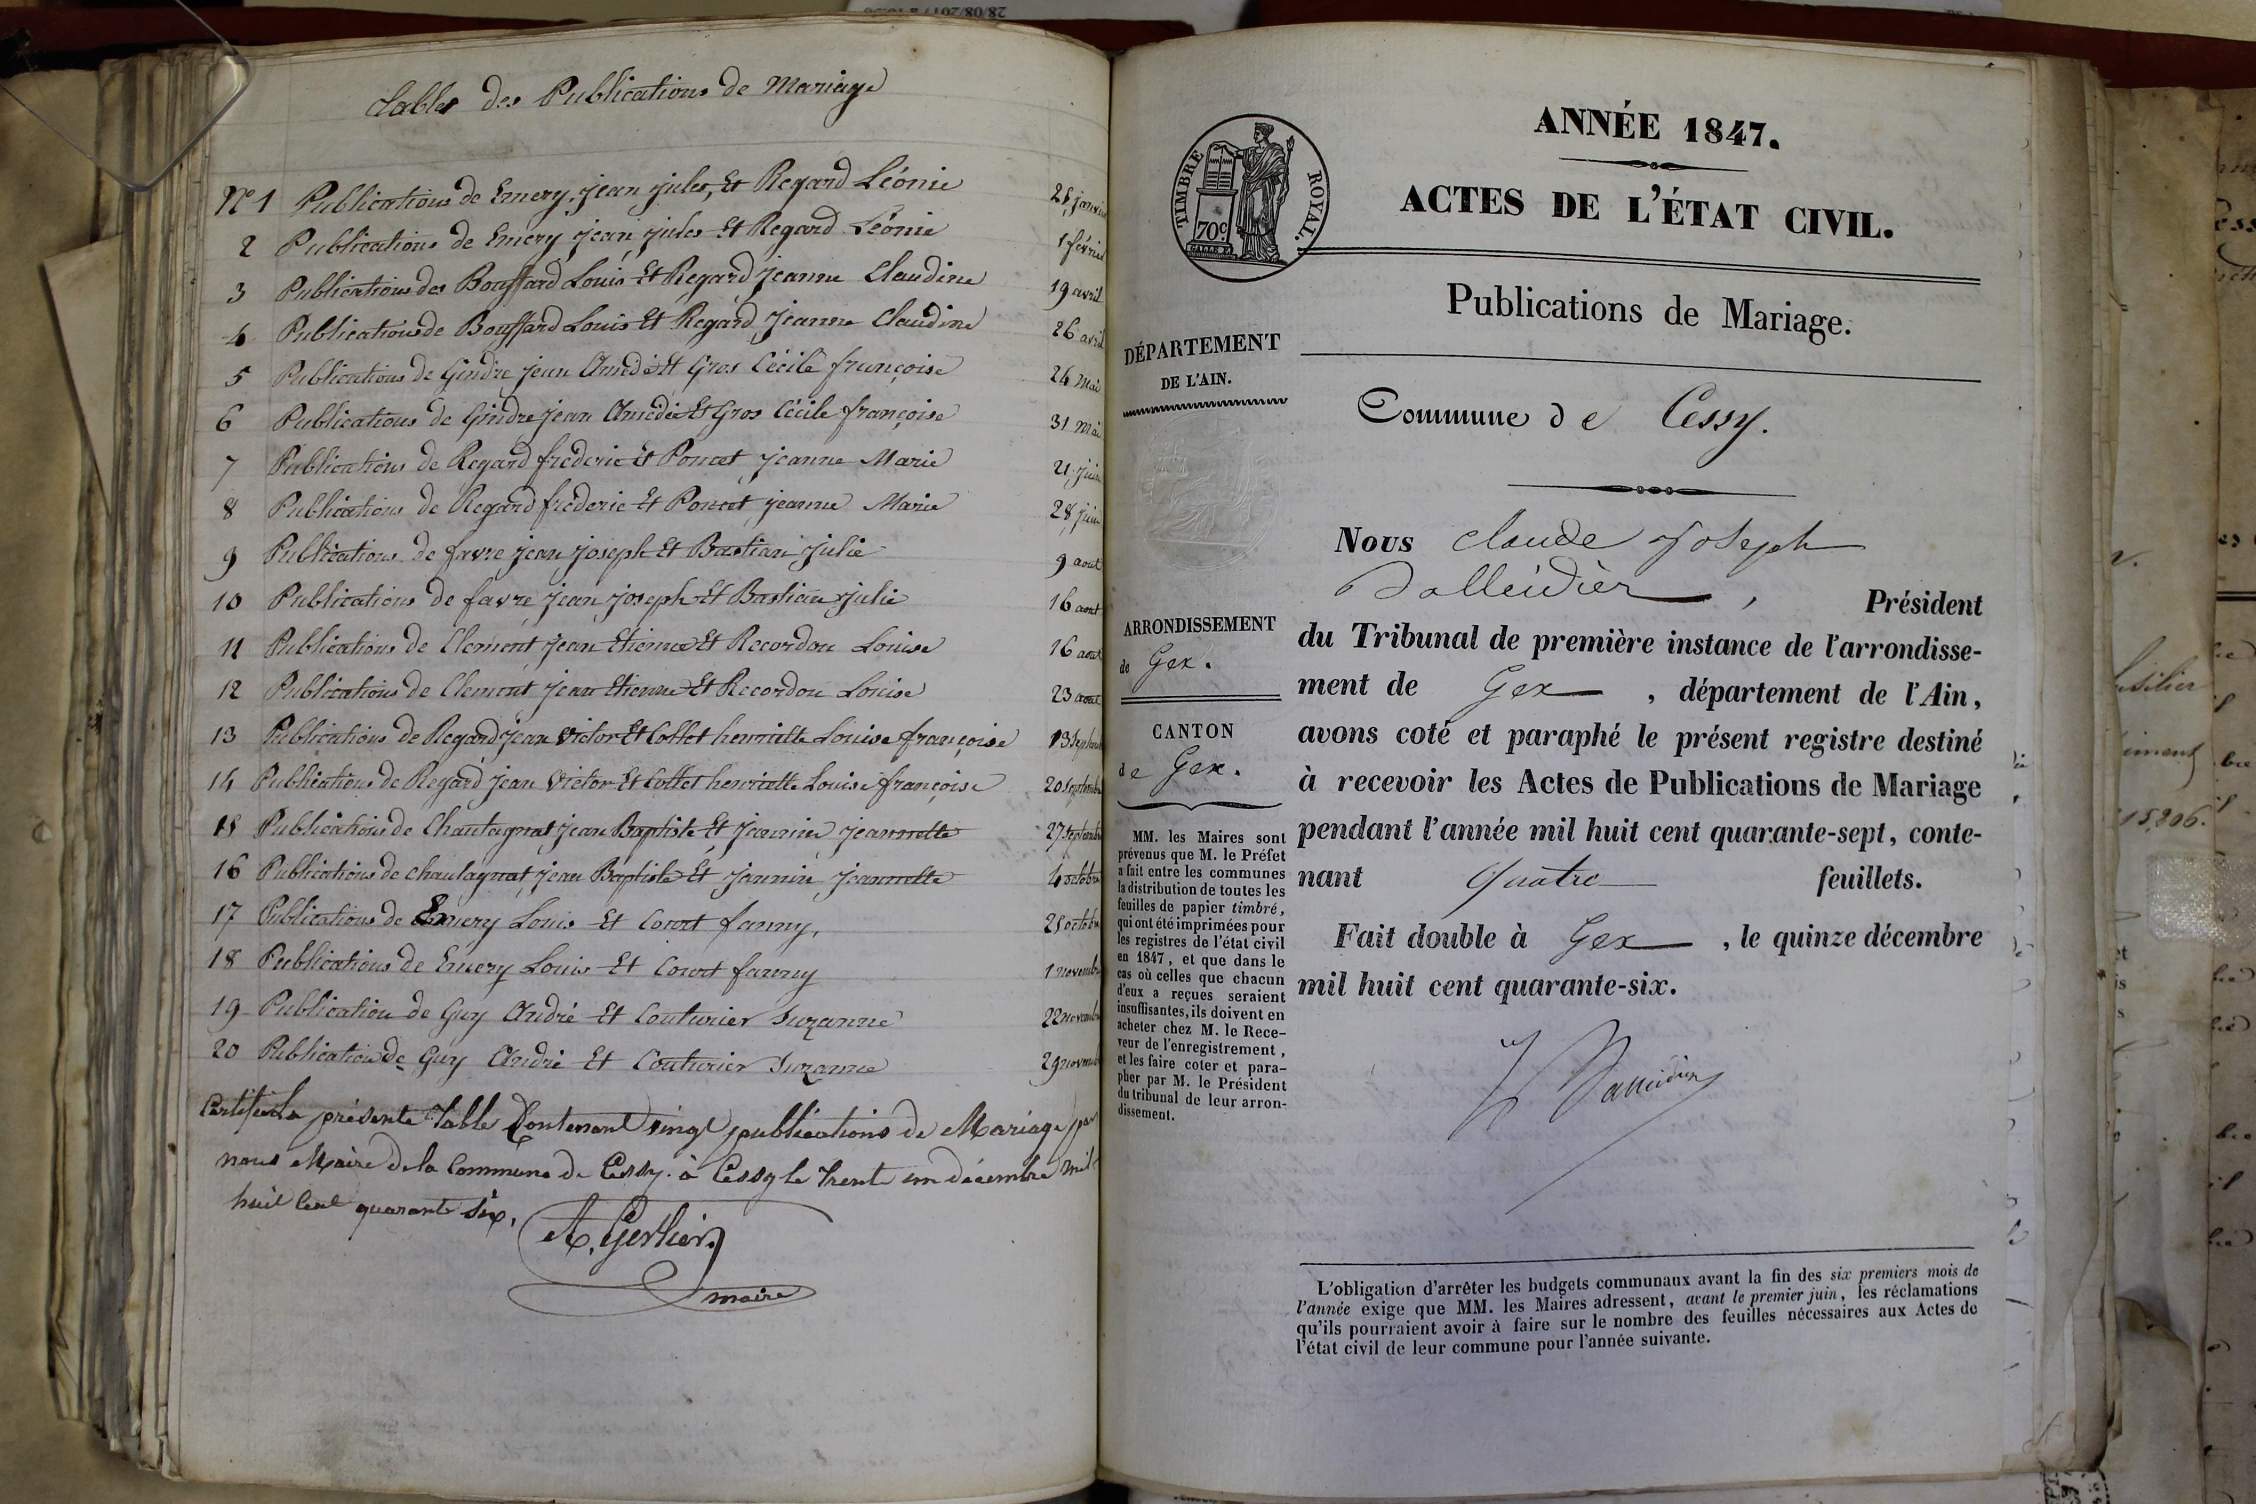 Tables des Publications de Mariage
N° 1 Publications de Emery, jean jules, Et Regard Léonie 25 janvier
2 Publications de Emery jean jules Et Regard Léonie 1 février
3 Publications des Bouffard Louis Et Regard jeanne Claudine 19 avril
4 Publications de Bouffard Louis Et Regard jeanne Claudine 26 avril
5 Publications de Gindre jean Amédé Et Gros Cécile françoise 24 Mai
6 Publications de Gindre jean Amédée Et Gros Cécile françoise 31 Mai
7 Publications de Regard frederic Et Poncet jeanne Marie 21 juin
8 Publications de Regard frederic Et Poncet jeanne Marie 28 juin
9 Publications de favre jean joseph Et Bastian julie 9 aout
10 Publications de favre jean joseph Et Bastian julie 16 aout
11 Publications de Clement jean Etienne Et Recordon Louise 16 aout
12 Publications de Clement jean Etienne Et Recordon Louise 23 aout
13 Publications de Regard jean victor Et Collet henriette Louise françoise 13 Septembre
14 Publications de Regard jean victor Et Collet henriette Louise françoise 20 septembre
15 Publications de Chautagnat jean Baptiste Et Jeannin jeannette 27 septembre
16 Publications de chautagnat jean Baptiste Et jannin jeannette 4 octobre
17 Publications de Emery Louis Et Court fanny, 25 octobre
18 Publications de Emery Louis Et Court fanny 1 novembre
19 Publication de Guy André Et Couturier Suzanne 22 novembre
20 Publication de Guy André Et Couturier Suzanne 29 novembre
Certifié la présente Table Contenant vingt publications de Mariage par
nous Maire de la Commune de Cessy. à Cessy le trente un décembre mil
huit Cent quarante six.
A. Gerlier
maire
ANNÉE 1847.
ACTES DE L'ÉTAT CIVIL.
TIMBRE ROYAL.
70c
Publications de Mariage.
DÉPARTEMENT
DE L'AIN.
Commune de Cessy.
ARRONDISSEMENT
de Gex.
CANTON
de Gex.
MM. les Maires sont
prévenus que M. le Préfet
a fait entre les communes
la distribution de toutes les
feuilles de papier timbré,
qui ont été imprimées pour
les registres de l'état civil
en 1847, et que dans le
cas où celles que chacun
d'eux a reçues seraient
insuffisantes, ils doivent en
acheter chez M. le Rece-
veur de l'enregistrement,
et les faire coter et para-
pher par M. le Président
du tribunal de leur arron-
dissement.
Nous Claude Joseph
, Président
du Tribunal de première instance de l'arrondisse-
ment de Gex , département de l'Ain,
avons coté et paraphé le présent registre destiné
à recevoir les Actes de Publications de Mariage
pendant l'année mil huit cent quarante-sept, conte-
nant Quatre feuillets.
Fait double à Gex , le quinze décembre
mil huit cent quarante-six.
L'obligation d'arrêter les budgets communaux avant la fin des six premiers mois de
l'année exige que MM. les Maires adressent, avant le premier juin, les réclamations
qu'ils pourraient avoir à faire sur le nombre des feuilles nécessaires aux Actes de
l'état civil de leur commune pour l'année suivante.